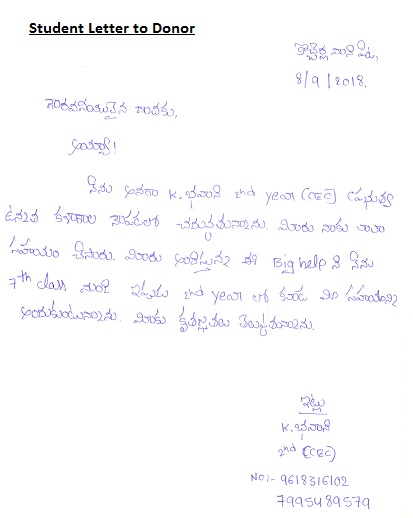 Student Letter to Donor
8/9/2018.
గౌరవనీయులైన దాతకు,
అయ్యా!
నేను అనగా K.భవాని 2nd year (CEC) ప్రభుత్వ
కళాశాల లో చదువుతున్నాను. మీరు నాకు చాలా
సహాయం చేసారు. మీరు అందిస్తున్న ఈ Big help ని నేను
7th class నుంచి ఇప్పుడు 2nd year లో కూడా మీ సహాయాన్ని
అందుకుంటున్నాను. మీకు కృతజ్ఞతలు తెలుపుతున్నాను.
ఇట్లు
K.భవాని
2nd (CEC)
NO:- 9618316102
7995489579